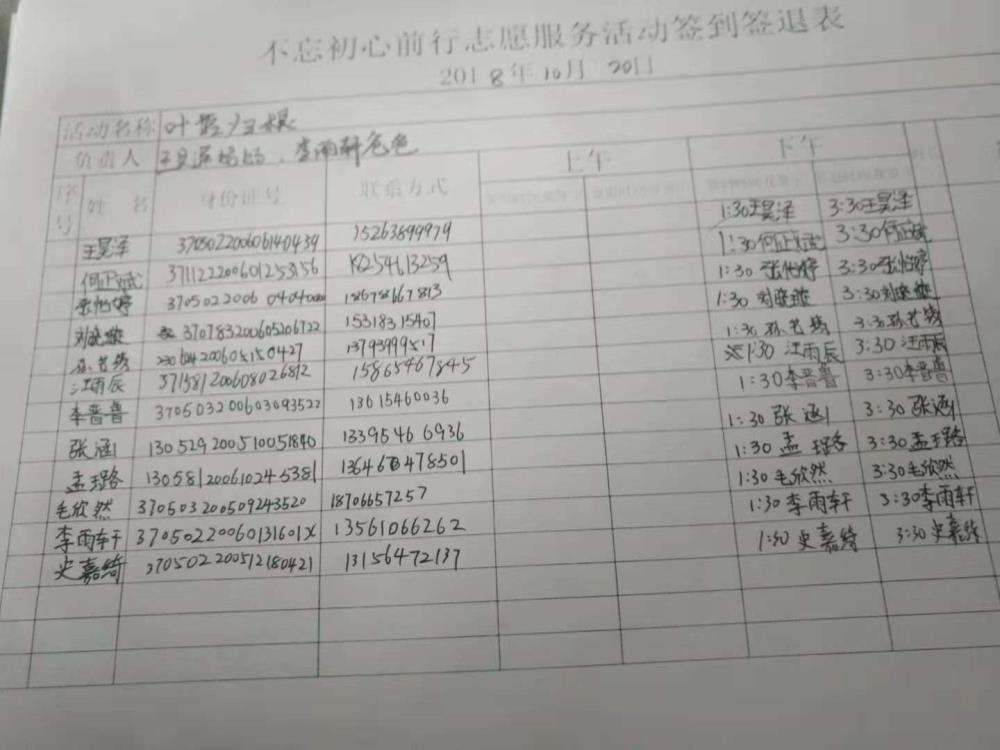 不忘初心前行志愿服务活动签到签退表
2018年10月20日
活动名称 叶落归根
负责人 李雨轩爸爸
序号 姓名 身份证号 联系方式 上午 下午
王昊泽 370502200606140439 15263899979 1:30王昊泽 3:30王昊泽
何正斌 371122200601253156 1:30何正斌 3:30何正斌
张怡婷 1:30 张怡婷 3:30张怡婷
刘晓璇 370783200605206722 15318315407 1:30 刘晓璇 3:30刘晓璇
孙艺 1:30 孙艺 3:30孙艺
江雨辰 371581200608026812 15865467845 1:30 江雨辰 3:30 江雨辰
李晋鲁 370503200603093522 13615460036 1:30李晋鲁 3:30李晋鲁
张涵 130529200510051840 13395466936 1:30 张涵 3:30 张涵
孟璐 130581200610245381 1:30 孟璐 3:30 孟璐
毛欣然 370503200509243520 18706657257 1:30 毛欣然 3:30毛欣然
李雨轩 37050220060131601X 13561066262 1:30 李雨轩 3:30李雨轩
史嘉绮 370502200512180421 13156472137 1:30 史嘉绮 3:30史嘉绮